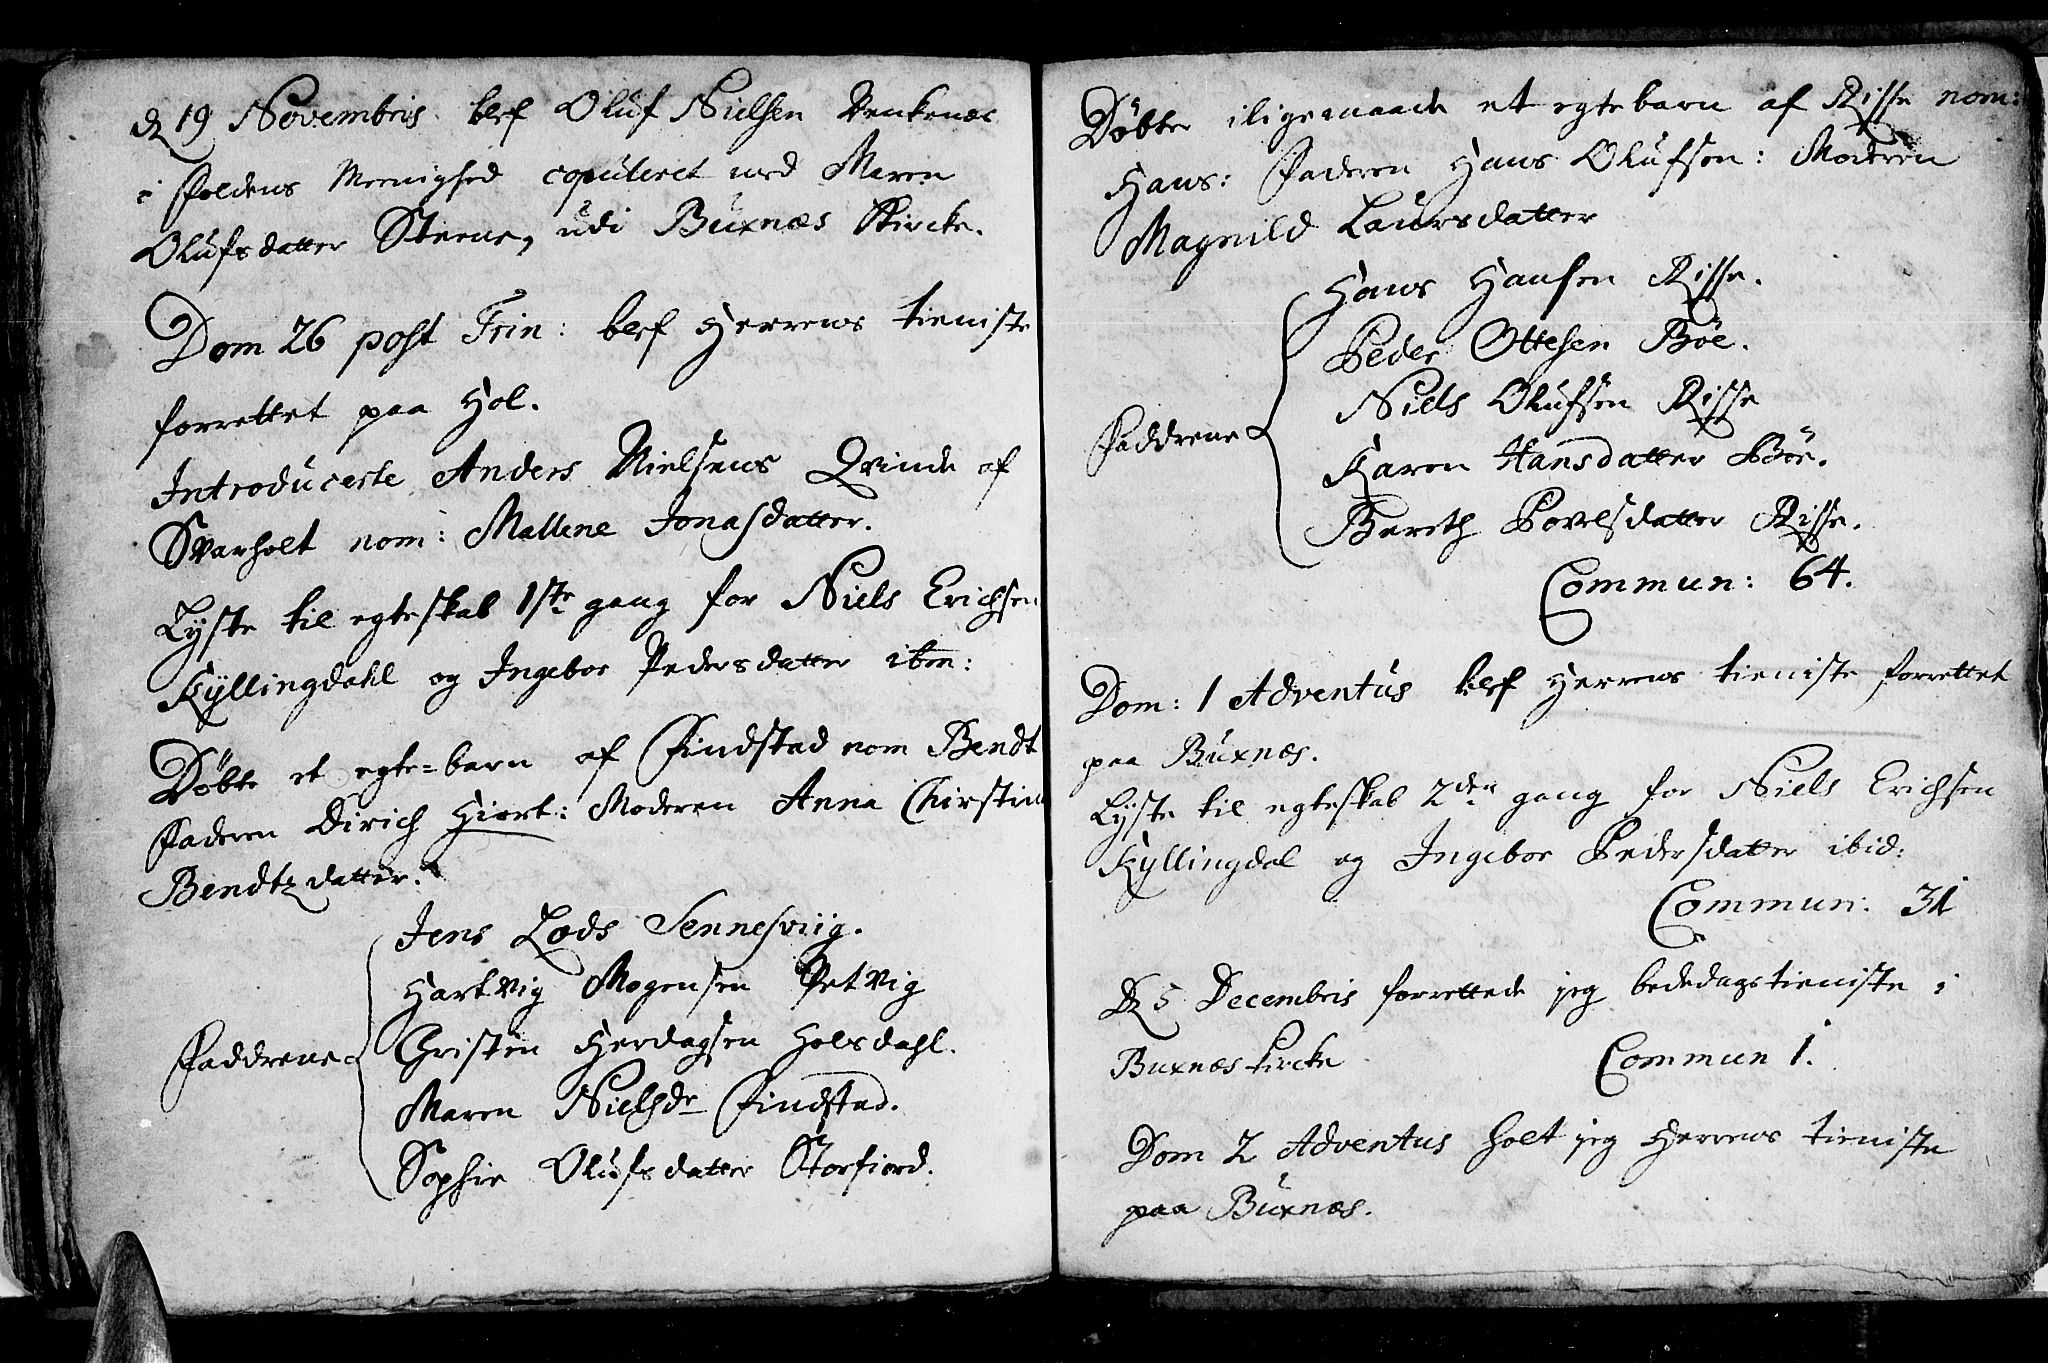 d 19 Novembris blef Oluf Nielsen Venkenæs
i Foldens Meenighed copuleret med Maren
Olufsdatter Steene, udi Buxnæs Kircke.
Dom 26 post Trin: blef Herrens tieniste
forrettet paa Hol.
Introducerte Anders Nielsens Qvinde af
Svarholt nom: Mallene Jonasdatter.
Lyste til egteskab 1ste gang for Niels Erichsen
Kyllingdahl og Ingebor Pedersdatter ibm:
Døbte et egte=barn af Findstad nom Bendt
Faderen Dirich Hiort: Moderen Anna Chirstin
Bendtzdatter.
Faddrene
Jens Lods Sennesviig.
Hartvig Mogensen Petvig
Christen Herdagsen Holsdahl.
Maren Nielsdr Findstad.
Sophie Olufsdatter Storfiord.
Døbte iligemaade et egtebarn af Risse nom:
Hans: Faderen Hans Olufsen: Moderen
Magnild Laursdatter
Faddrene
Hans Hansen Risse.
Peder Ottesen Bøe.
Niels Olufsen Risse
Karen Hansdatter Bøe.
Bereth Povelsdatter Risse.
Commun: 64.
Dom: 1 Adventus blef Herrens tieniste forrettet
paa Buxnæs.
Lyste til egteskab 2den gang for Niels Erichsen
Kyllingdal og Ingebor Pedersdatter ibid:
Commun: 31
D 5 Decembris forrettede jeg bededagstieniste i
Buxnæs kircke Commun 1.
Dom 2 Adventus holt jeg Herrens tieniste
paa Buxnæs.